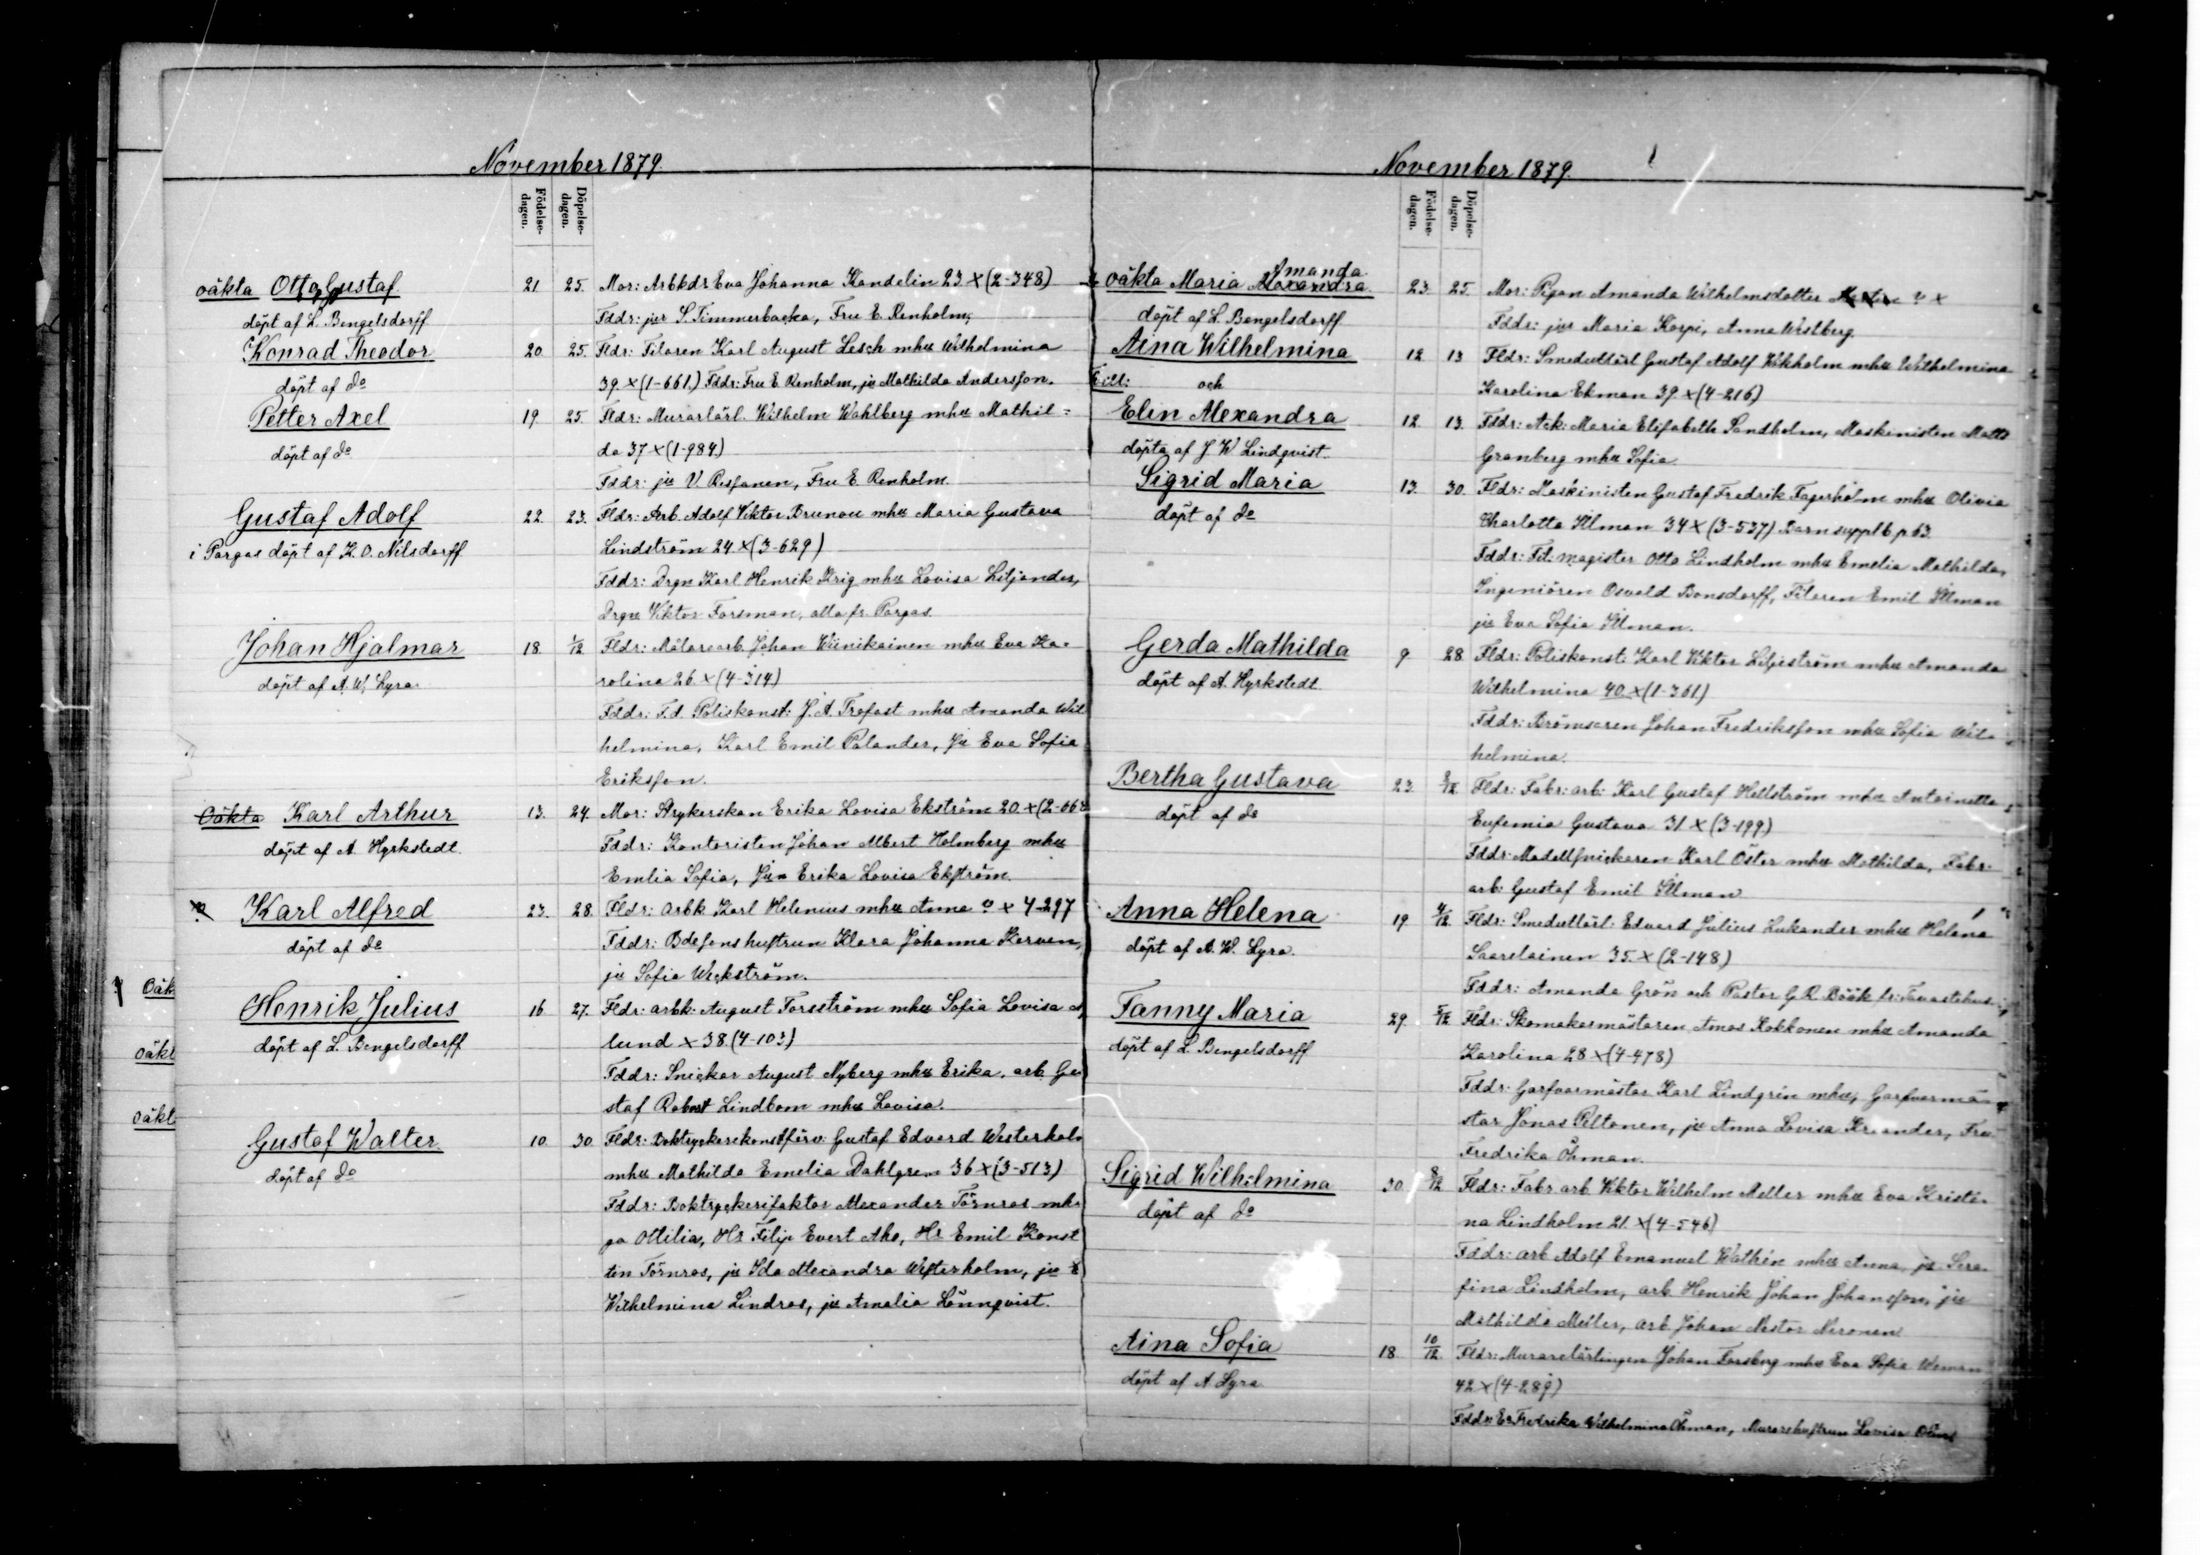 November 1879.
Födelse-dagen.
Döpelse-dagen.
oäkta Otto Gustaf 21 25. Mor: Arbkdr Eva Johanna Kandelin 23 × (2-348)
döpt af L. Bengelsdorff Fddr: jur S. Timmerbacka, Fru E. Renholm,
Konrad Theodor 20. 25. Fldr: Filaren Karl August Lesch mhu Wilhelmina
döpt af do 39. × (1-661.) Fddr: Fru E. Renholm, ju Mathilda Andersson.
Petter Axel 19. 25. Fldr: Murarlärl. Wilhelm Wahlberg mhu Mathil=
döpt af do da 37 × (1-984)
Fddr: ju V. Respanen, Fru E. Renholm.
Gustaf Adolf 22. 23. Fldr: Arb. Adolf Viktor Brunou mhu Maria Gustava
i Pargas döpt af K. O. Nilsdorff Lindström 24 × (3-629)
Fddr: Drgn Karl Henrik Krig mhu Lovisa Liljander,
Drgn Viktor Forsman, alla fr. Pargas.
Johan Hjalmar 18. 1/12 Fldr: Målarearb. Johan Wiinikainen mhu Eva Ka-
döpt af A. W. Lyra. rolina 26. × (4-314)
Fddr: F.d. Poliskonst: J. A. Trofast mhu Amanda Wil
helmina, Karl Emil Palander, Ju Eva Sofia
Eriksson.
Oäkta Karl Arthur 13. 24. Mor: Strykerskan Erika Lovisa Ekström 20. × (2-664
döpt af A. Hyrkstedt. Fddr: Kontoristen Johan Albert Holmberg mhu
Emlia Sofia, Jun Erika Lovisa Ekström.
Karl Alfred 23. 28. Fldr: Arbk Karl Helenius mhu Anna × 4-297
döpt af do Fddr: Bdesonshustrun Klara Johanna Kerven,
ju Sofia Weckström.
Henrik Julius 16. 27. Fldr: arbk. August Forsström mhu Sofia Lovisa
döpt af L. Bengelsdorff lund × 38. (4-103)
Fddr: Snickar August Nyberg mhu Erika, arb. Gu
staf Robert Lindbom mhu Lovisa.
Gustaf Walter 10. 30. Fldr: Boktryckerikonstförv: Gustaf Edvard Westerholm
döpt af do mhu Mathilda Emelia Dahlgren 36 × (3-513)
Fddr: Boktryckerifaktor Alexander Törnros mh
ga Ottilia, Hr Filip Evert Aho, Hr Emil Konst
tin Törnros, ju Ida Alexandra Westerholm, ju
Wilhelmina Lindros, ju Amalia Lönnqvist.
Oäk
oäkt
oäkt
November 1879.
Födelse-dagen.
Döpelse-dagen.
Amanda
oäkta Maria Alexandra 23. 25. Mor: Pigan Amanda Wilhelmsdotter ×
döpt af L. Bengelsdorff Fddr: jur Maria Korpi, Anna Westberg.
Aina Wilhelmina 12 13 Fldr: Smedutlärl Gustaf Adolf Wikholm mhu Wilhelmina
Tvill: och Karolina Ekman 39. × (4-216)
Elin Alexandra 12. 13. Fddr: Ack: Maria Elisabeth Sandholm, Maskinisten Matts
döpta af J W Lindqvist. Granberg mhu Sofia.
Sigrid Maria 13. 30. Fldr: Maskinisten Gustaf Fredrik Fagerholm mhu Olivia
döpt af do Charlotta Illman 34 × (3-537) Barnsuppl 6 p 63.
Fddr: Fil. magister Otto Lindholm mhu Emelia Mathilda,
Ingeniören Osvald Bonsdorff, Filaren Emil Illman
ju Eva Sofia Illman.
Gerda Mathilda 9. 28. Fldr: Poliskonst: Karl Viktor Liljeström mhu Amanda
döpt af A. Hyrkstedt. Wilhelmina 40 × (1-361)
Fddr: Brömsaren Johan Fredriksson mhu Sofia Wil-
helmina.
Bertha Gustava 23. 2/12 Fldr: Fabr: arb: Karl Gustaf Hellström mhu Antoinetta
döpt af do Eufemia Gustava 31 × (3-199)
Fddr: Modellsnickaren Karl Öster mhu Mathilda, Fabr:
arb: Gustaf Emil Illman
Anna Helena 19. 4/12 Fldr: Smedutlärl: Edvard Julius Lukander mhu Helena
döpt af A. W. Lyra. Saarelainen 35. × (2-148)
Fddr: Amanda Grön och Pastor G R. Böök fr: Tavastehus.
Fanny Maria 29. 5/12 Fldr: Skomakarmästaren Amos Kokkonen mhu Amanda
döpt af L Bengelsdorff Karolina 28 × (4-478)
Fddr: Garfvarmästar Karl Lindgrén mhu, Garfvarmä-
star Jonas Peltonen, ju Anna Lovisa Krander, Fru
Fredrika Öhman.
Sigrid Wilhelmina 30. 8/12 Fldr: Fabr. arb. Viktor Wilhelm Meller mhu Eva Kristi-
döpt af do na Lindholm 21. × (4-546)
Fddr: arb. Adolf Emanuel Wathén mhu Anna, ju Sera-
fina Lindholm, arb. Henrik Johan Johansson, ju
Mathilda Meller, arb Johan Nestor Neronen
Aina Sofia 18. 10/12 Fldr: Murarelärlingen Johan Forsberg mhu Eva Sofia Weman
döpt af A Lyra. 42 × (4-289)
Fddr: Ea Fredrika Wilhelmina Öhman, Murarehustrun Lovisa